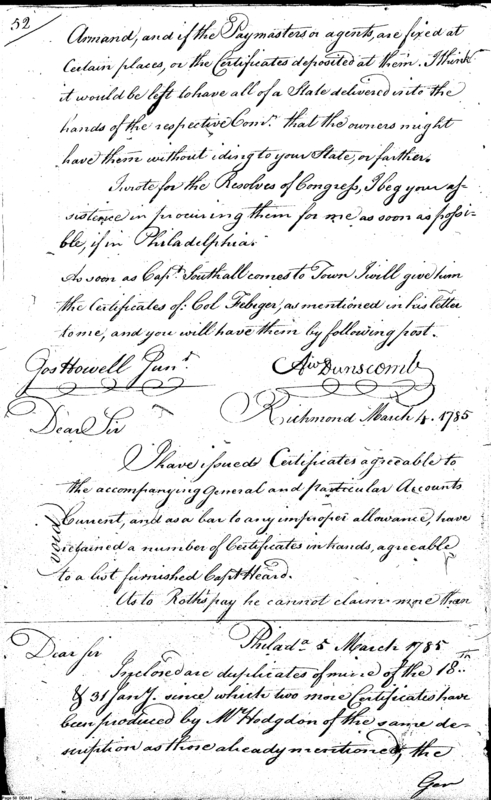 52
Armand, and if the Paymasters or agents, are fixed at
Certain places, or the Certificates deposited at them. I think
it would be left to have all of a State delivered into the
hands of the respective Comr. that the owners might
have them without iding to your State, or farther.
I wrote for the Resolves of Congress, I beg your as-
sistence in procuring them for me as soon as possi-
ble, if in Philadelphia.
As soon as Capt. Southall comes to Town I will give him
the Certificates of: Col Febiger, as mentioned in his letter
to me, and you will have them by following post.
Jos Howell Junr.
Aw Dunscomb
Richmond March 4. 1785
Dear Sir
I have issued Certificates agreeable to
the accompanying General and particular Accounts
Current, and as a bar to any improper allowance, have
retained a number of Certificates in hands, agreeable
to a list furnished Capt Heard.
void
As to Roth's pay he cannot claim more than
Philada. 5 March 1785
Dear Sir
Inclosed are duplicates of mine of the 18th
& 31 Jany. since which two more Certificates have
been produced by Mr Hodgdon of the same de-
scription as those already mentioned, the
Gen